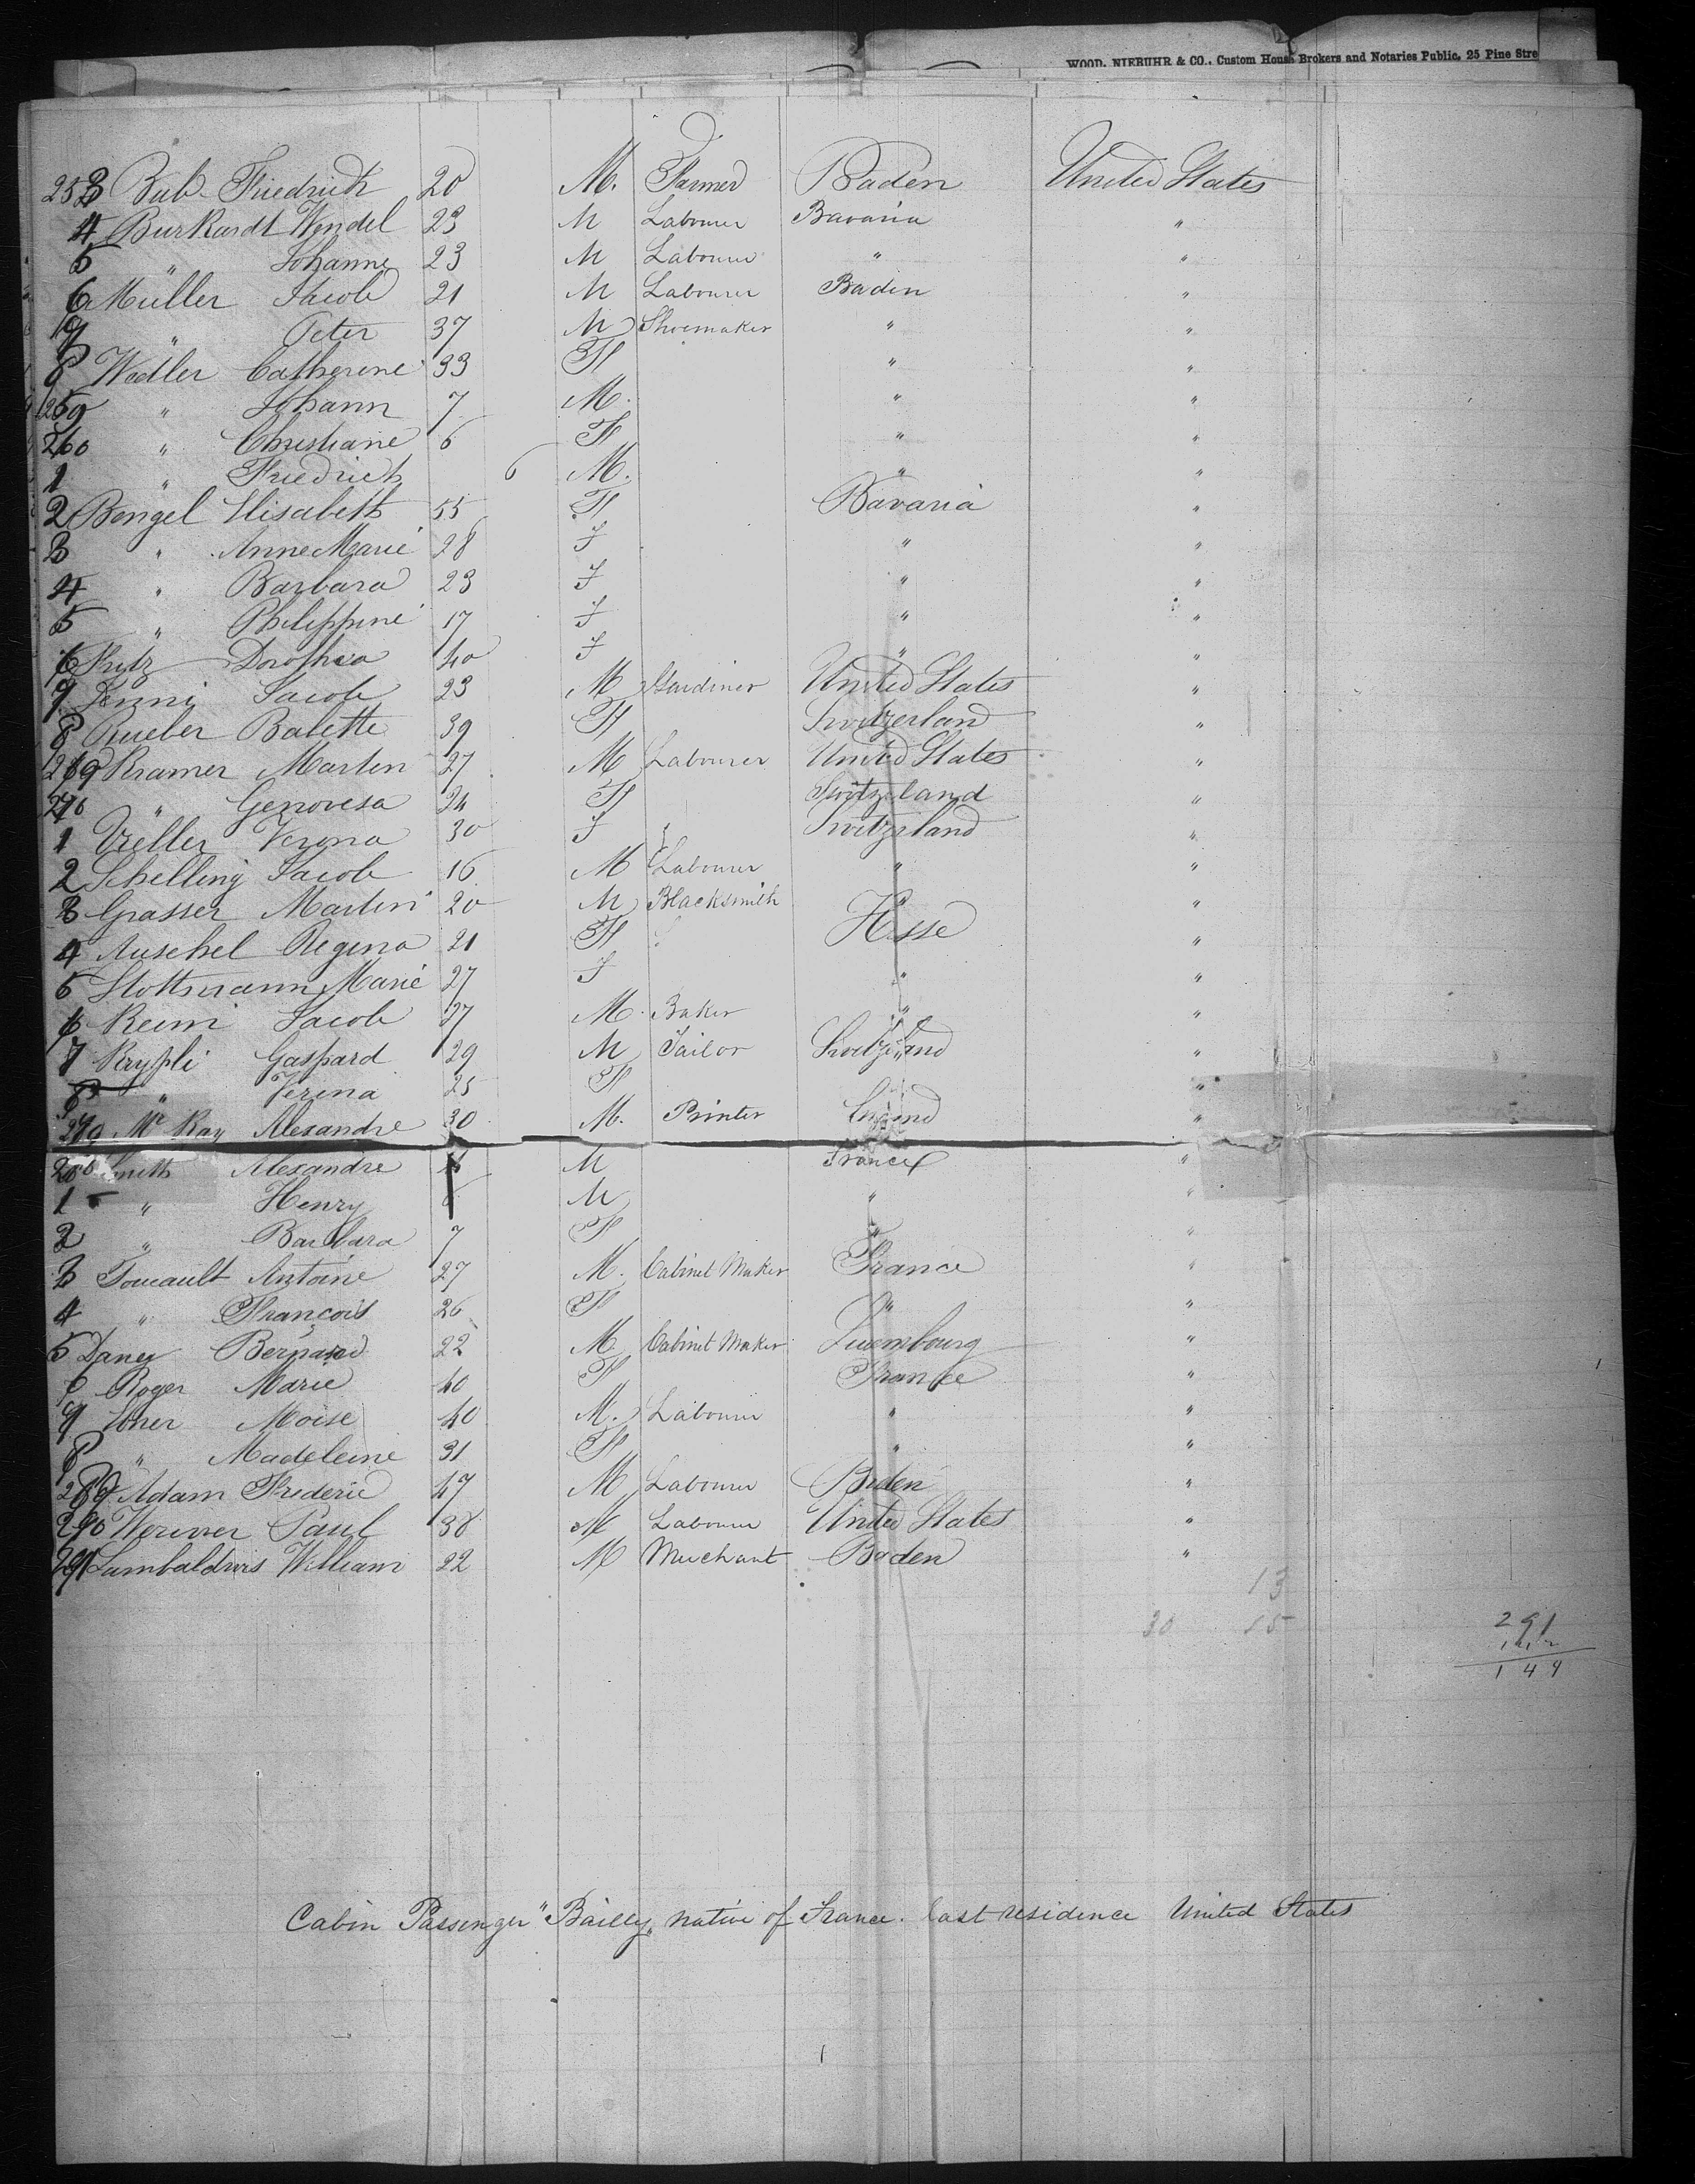 WOOD, NIEBUHR & CO., Custom House Brokers and Notaries Public, 25 Pine Stre
253 Bub Friedrich 20 M. Farmer Baden United States
4 Burkardt Wendel 23 M Labourer Bavaria "
5 " Johanne 23 M Labourer " "
6 Müller Jacob 21 M Labourer Baden "
7 " Peter 37 M Shoemaker " "
8 Wedler Catherine 33 F " "
259 " Johann 7 M. " "
260 " Christiane 6 F " "
1 " Friedrich 6 M. " "
2 Bengel Elisabeth 55 F Bavaria "
3 " Anne Marie 28 F " "
4 " Barbara 23 F " "
5 " Philippine 17 F " "
6 Fritz Dorothea 40 F " "
7 Jenni Jacob 23 M Gardiner United States "
8 Rueber Babette 39 F Switzerland "
269 Kramer Martin 27 M Labourer United States "
270 " Genovesa 24 F Switzerland "
1 Veller Verona 30 F Switzerland "
2 Schelling Jacob 16 M Labourer " "
3 Grasser Martin 20 M Blacksmith "
4 Auschel Regina 21 F Hesse "
5 Stottmann Marie 27 F " "
6 Reimi Jacob 27 M. Baker " "
7 Raypli Gaspard 29 M Tailor Switzerland "
8 " Verena 25 F " "
279 Mc Kay Alexandre 30 M. Printer England "
280 Smith Alexandre M France "
1 " Henry M " "
2 " Barbara 7 F " "
3 Foucault Antoine 27 M. Cabinet Maker France "
4 " François 26 F " "
5 Daney Bernard 22 M Cabinet Maker Luxembourg "
6 Roger Marie 40 F France
7 Moïse 40 M. Labourer " "
8 " Madeleine 31 F " "
289 Adam Frederic 47 M Labourer Baden "
290 Werner Paul 38 M Labourer United States "
291 William 22 M Merchant Baden "
13
30 15
291
142
149
Cabin Passenger "Bailly" native of France. last residence United States